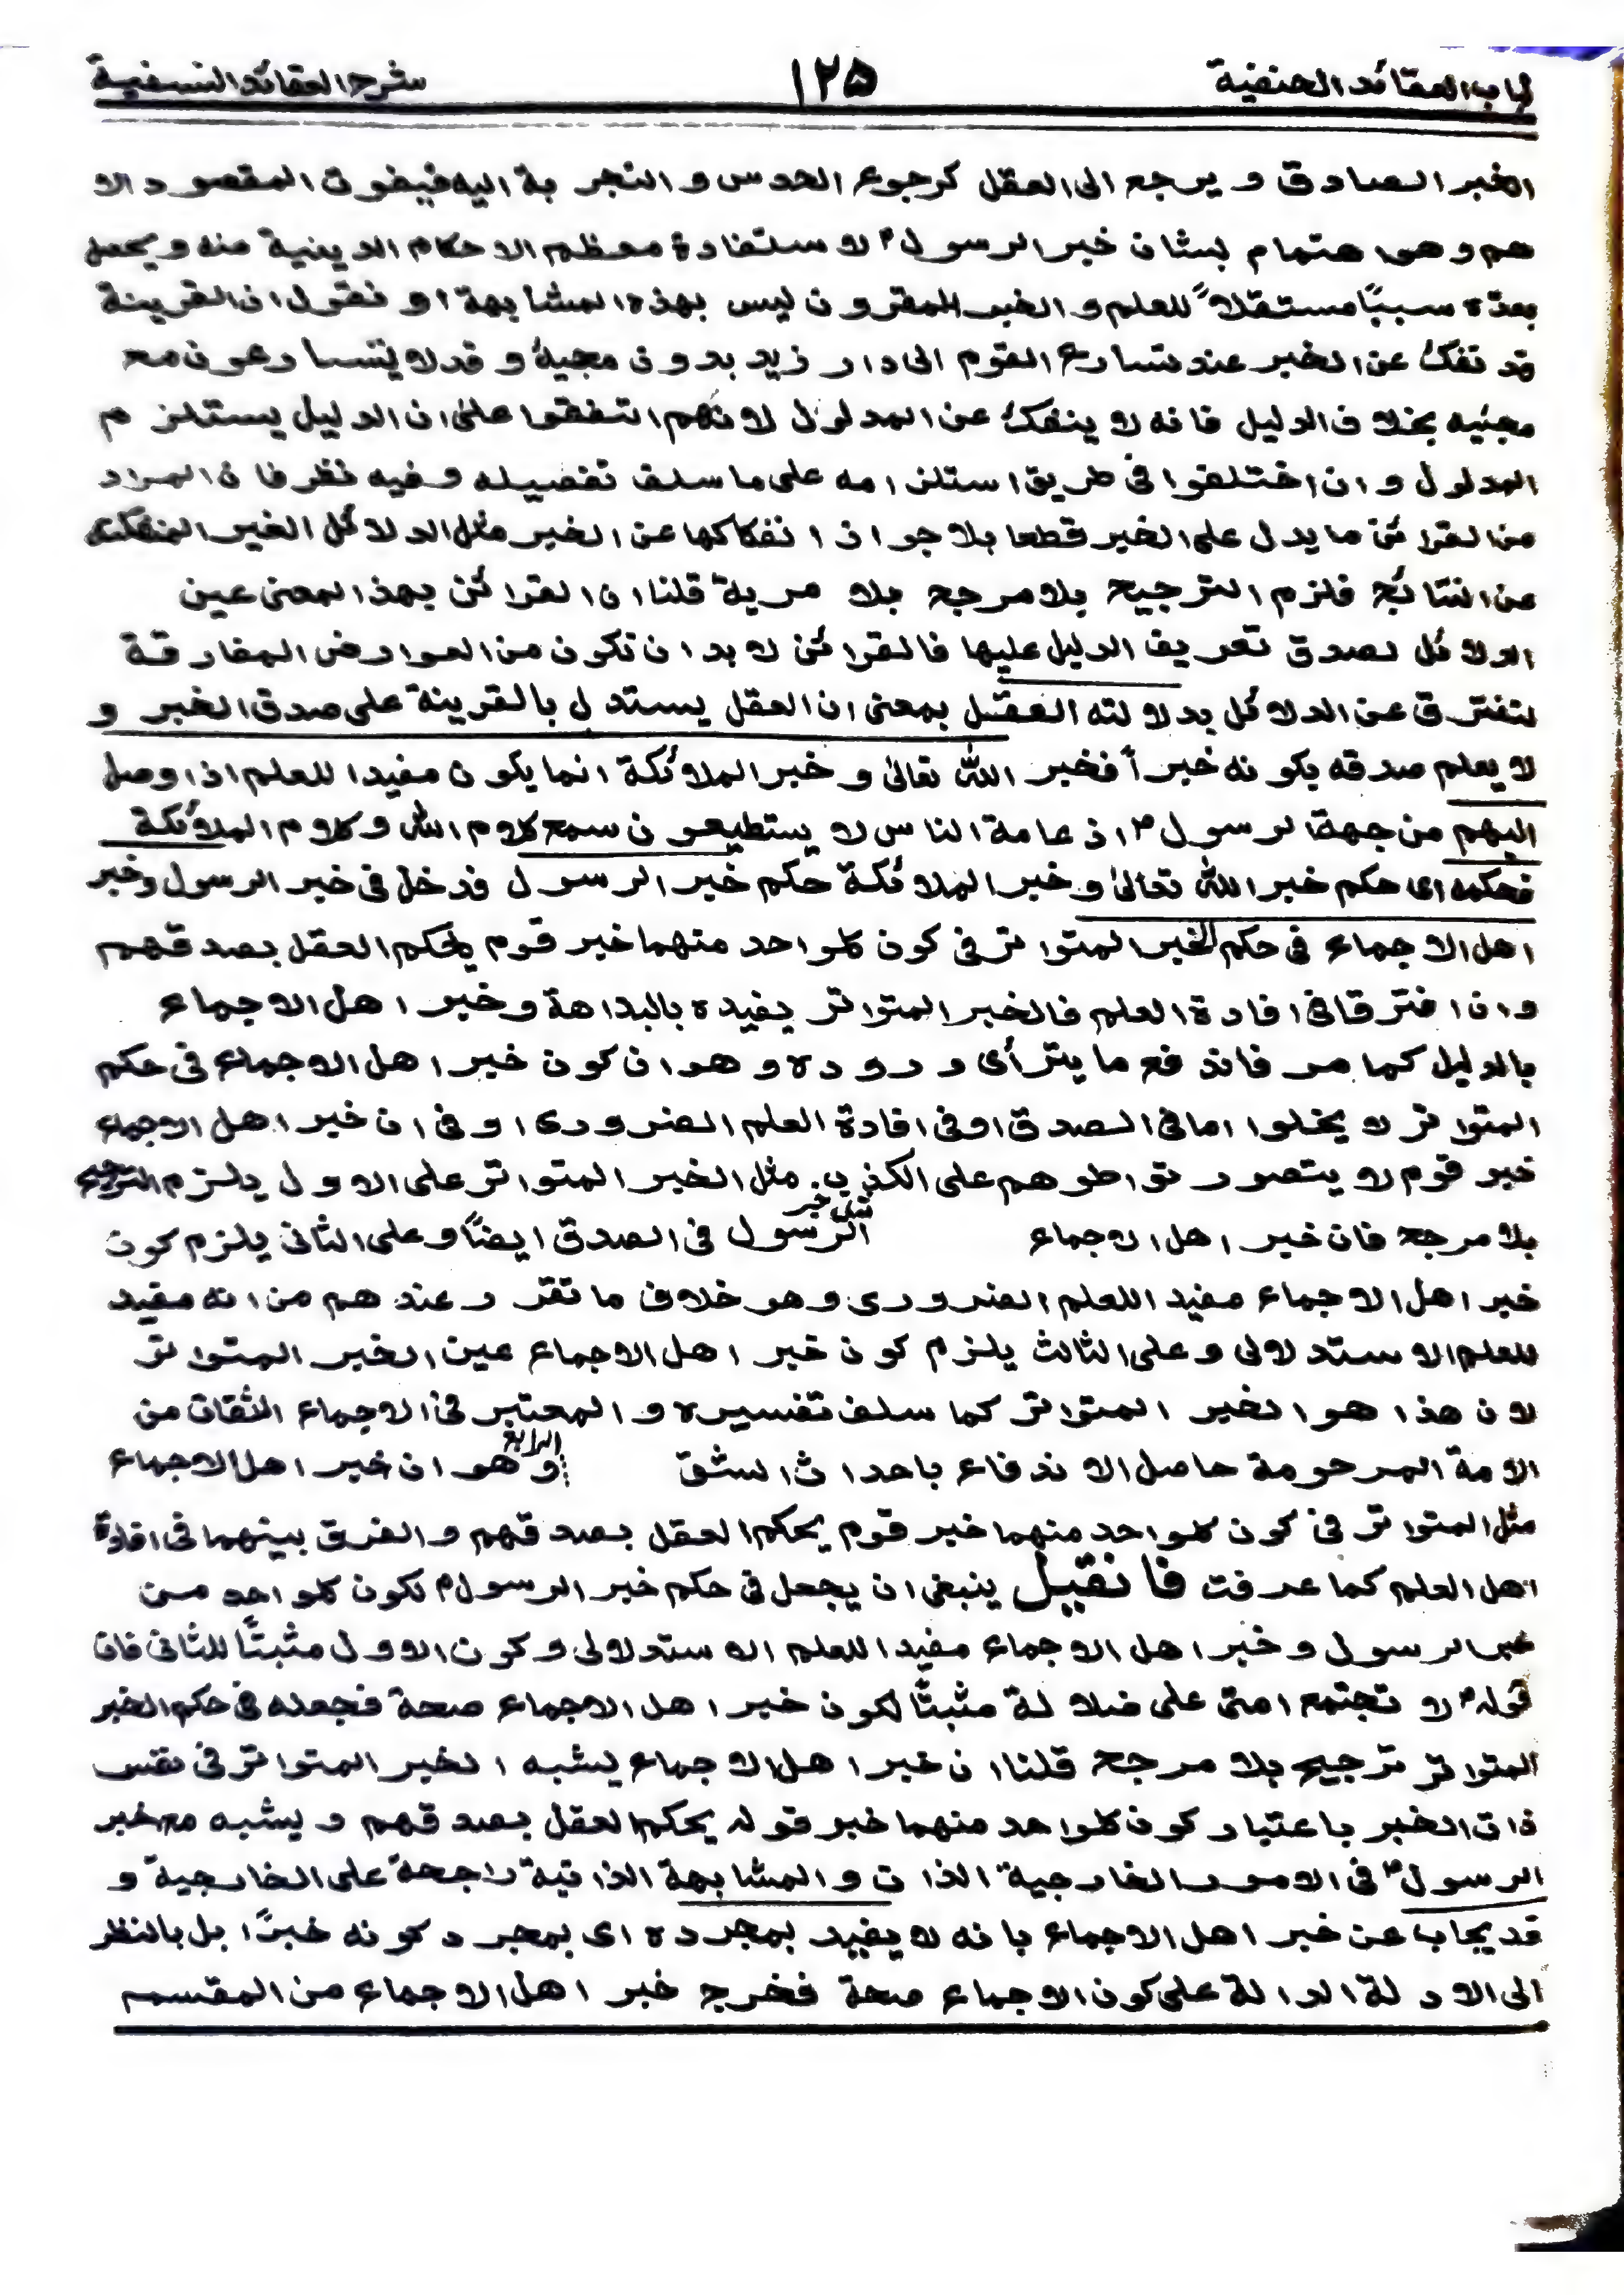 لباب العقائد الحنفية ۱۲۵ شرح العقائد النسفية
الخبر الصادق و يرجع الى العقل كرجوع الحدس و التجربة اليه فيفوت المقصود الا
هم و هو اهتمام بشان خبر الرسول ؐ لاستفادة معظم الاحكام الدينية منه و يجعل
بعدّه سببًا مستقلاً للعلم و الخبر المقرون ليس بهذه المشابهة او نقول ان القرينة
قد تنفك عن الخبر عند تسارع القوم الى دار زيد بدون مجيئه و قد لا يتسارعون مع
مجيئه بخلاف الدليل فانه لا ينفك عن المدلول لانهم اتفقوا على ان الدليل يستلزم
المدلول و ان اختلفوا فى طريق استلزامه على ما سلف تفصيله و فيه نظر فان المراد
من القرائن ما يدل على الخبر قطعا بلا جواز انفكاكها عن الخبر مثل الدلائل الغير المنفكة
عن النتائج فلزم الترجيح بلا مرجح بلا مرية قلنا ان القرائن بهذ المعنى عين
الدلائل لصدق تعريف الدليل عليها فالقرائن لا بد ان تكون من العوارض المفارقة
لتفترق عن الدلائل بدلالته العقل بمعنى ان العقل يستدل بالقرينة على صدق الخبر و
لا يعلم صدقه بكونه خبراً فخبر الله تعالى و خبر الملائكة انما يكون مفيدا للعلم اذا وصل
اليهم من جهة الرسول ؐ اذ عامة الناس لا يستطيعون سمع كلام الله و كلام الملائكة
فحكمه اى حكم خبر الله تعالى و خبر الملائكة حكم خبر الرسول فدخل فى خبر الرسول و خبر
اهل الاجماع فى حكم الخبر المتواتر فى كون كلواحد منهما خبر قوم يحكم العقل بصدقهم
و ان افترقا فى افادة العلم فالخبر المتواتر يفيده بالبداهة و خبر اهل الاجماع
بالدليل كما مر فاندفع ما يترأى وروده و هو ان كون خبر اهل الاجماع فى حكم
المتواتر لا يخلوا اما فى الصدق او فى افادة العلم الضرورى او فى ان خبر اهل الاجماع
خبر قوم لا يتصور تواطوهم على الكذب مثل الخبر المتواتر على الاول يلزم الترجيح
بلا مرجح فان خبر اهل الاجماع مثل خبر الرسول فى الصدق ايضًا و على الثانى يلزم كون
خبر اهل الاجماع مفيد اللعلم الضرورى و هو خلاف ما تقرر عندهم من انه مفيد
للعلم الاستدلالى و على الثالث يلزم كون خبر اهل الاجماع عين الخبر المتواتر
لان هذا هو الخبر المتواتر كما سلف تفسيره و المعتبر فى الاجماع الثقات من
الامة المرحومة حاصل الاندفاع باحداث الشق الرابع و هو ان خبر اهل الاجماع
مثل المتواتر فى كون كلواحد منهما خبر قوم يحكم العقل بصدقهم و الفرق بينهما فى افادة
اهل العلم كما عرفت فا نقيل ينبغى ان يجعل فى حكم خبر الرسول ؐ لكون كلواحد من
خبر الرسول و خبر اهل الاجماع مفيدا للعلم الاستدلالى و كون الاول مثبتًا للثانى فان
قوله ؐ لا تجتمع امتى على ضلالة مثبتًا لكون خبر اهل الاجماع صحة فجعله فى حكم الخبر
المتواتر ترجيح بلا مرجح قلنا ان خبر اهل الاجماع يشبه الخبر المتواتر فى نفس
ذات الخبر باعتبار كون كلواحد منهما خبر قوله يحكم العقل بصدقهم و يشبه مع خبر
الرسول ؐ فى الامور الخارجية الذات و المشابهة الذاتية راجحة على الخارجية و
قد يجاب عن خبر اهل الاجماع بانه لا يفيد بمجرده اى بمجرد كونه خبرًا بل بالنظر
الى الادلة الدالة على كون الاجماع صحة فخرج خبر اهل الاجماع من المقسم